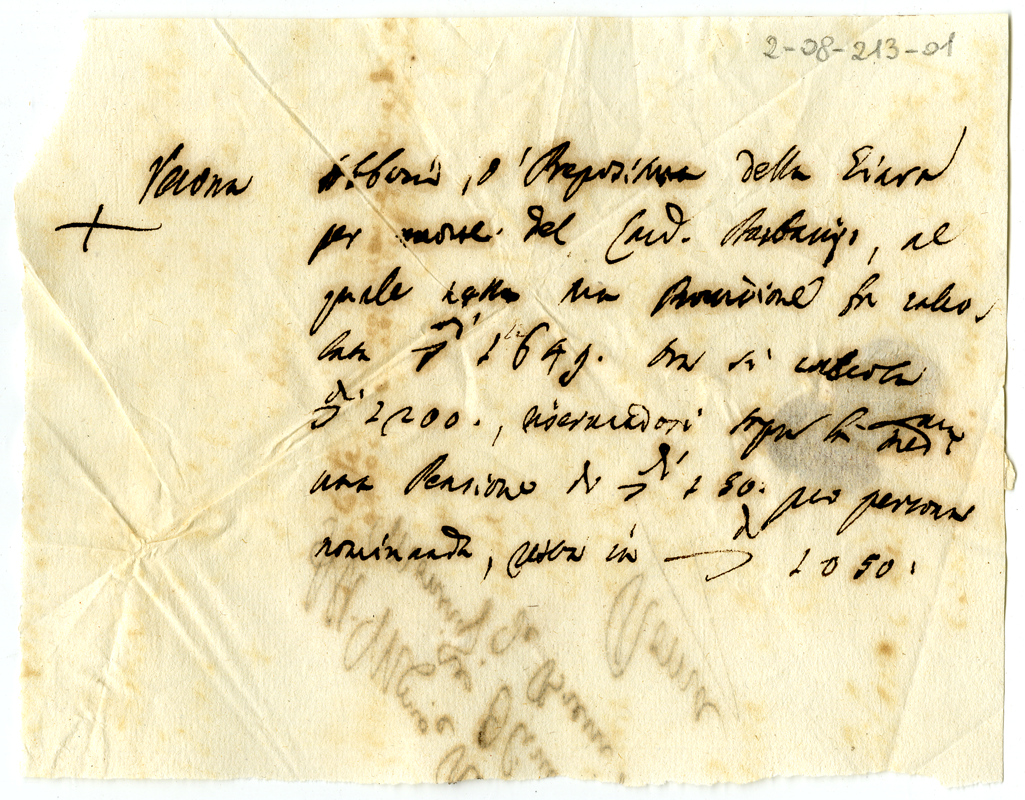 2-08-213-01
Verona Abbazia, o' Prepositura della Giara
per morte del Card. Barbarigo, al
quale nella sua Provisione fu calco,
lata di 1649. ora si calcola
di 1200., riservandosi sopra li med.mi
una Pensione di di 150. per persona
nominanda, resta in d 1050.